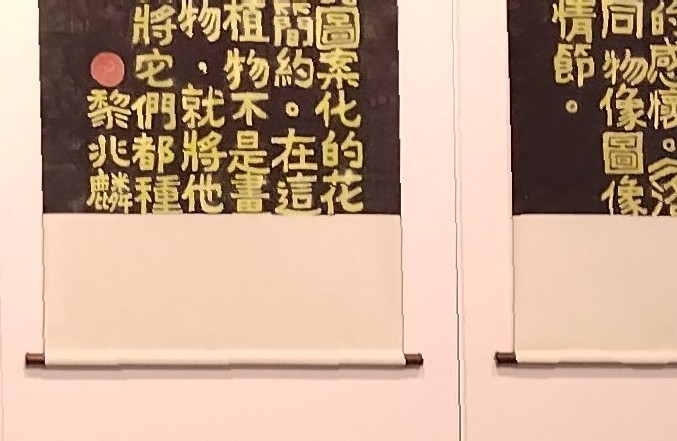 的感懷。
同物像圖像
情節。
圖案化的花
簡約。在這
植物不是畫
物，就將他
將它們都種
黎兆麟